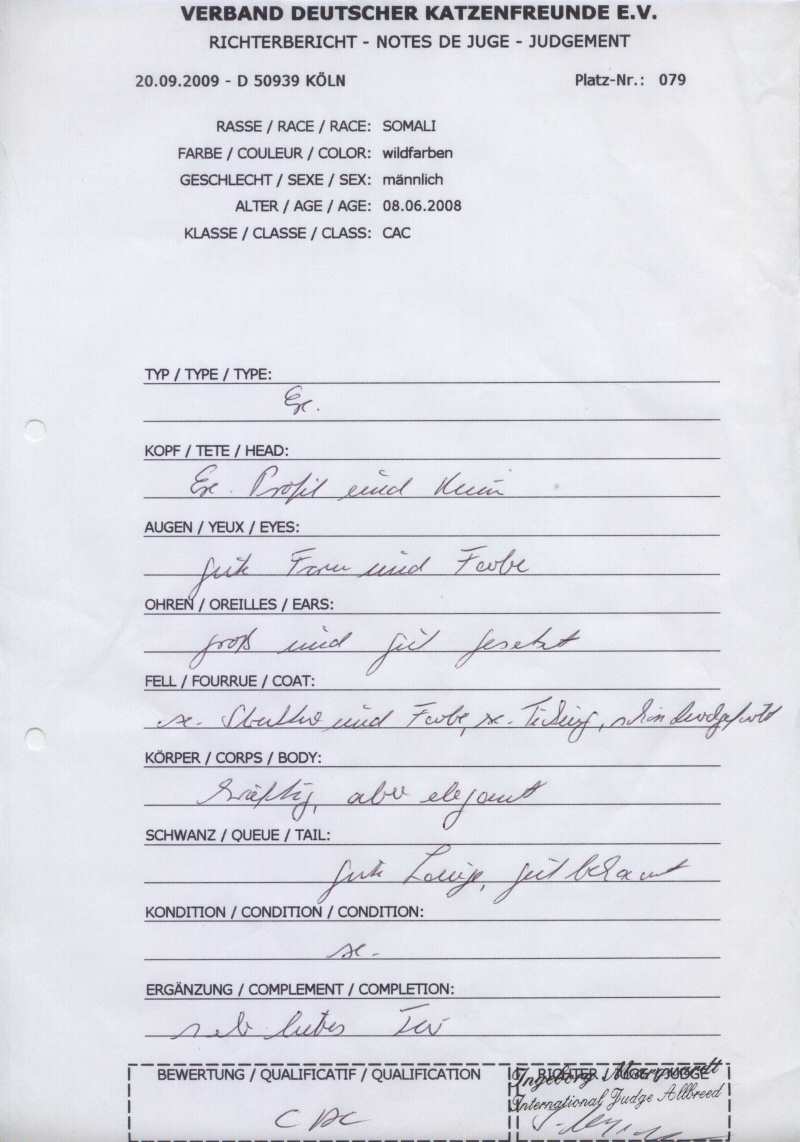 VERBAND DEUTSCHER KATZENFREUNDE E.V.
RICHTERBERICHT - NOTES DE JUGE - JUDGEMENT
20.09.2009 - D 50939 KÖLN Platz-Nr.: 079
RASSE / RACE / RACE: SOMALI
FARBE / COULEUR / COLOR: wildfarben
GESCHLECHT / SEXE / SEX: männlich
ALTER / AGE / AGE: 08.06.2008
KLASSE / CLASSE / CLASS: CAC
TYP / TYPE / TYPE:
Ex.
KOPF / TETE / HEAD:
Ex. Profil und Kinn
AUGEN / YEUX / EYES:
gute Form und Farbe
OHREN / OREILLES / EARS:
groß und gut gesetzt
FELL / FOURRUE / COAT:
ex. und Farbe, ex. Ticking, schön
KÖRPER / CORPS / BODY:
kräftig, aber elegant
SCHWANZ / QUEUE / TAIL:
gute Länge, gut behaart
KONDITION / CONDITION / CONDITION:
ex.
ERGÄNZUNG / COMPLEMENT / COMPLETION:
sehr liebes Tier
BEWERTUNG / QUALIFICATIF / QUALIFICATION RICHTER / JUGE / JUDGE
Ingeborg Marquardt
International Judge Allbreed
CAC